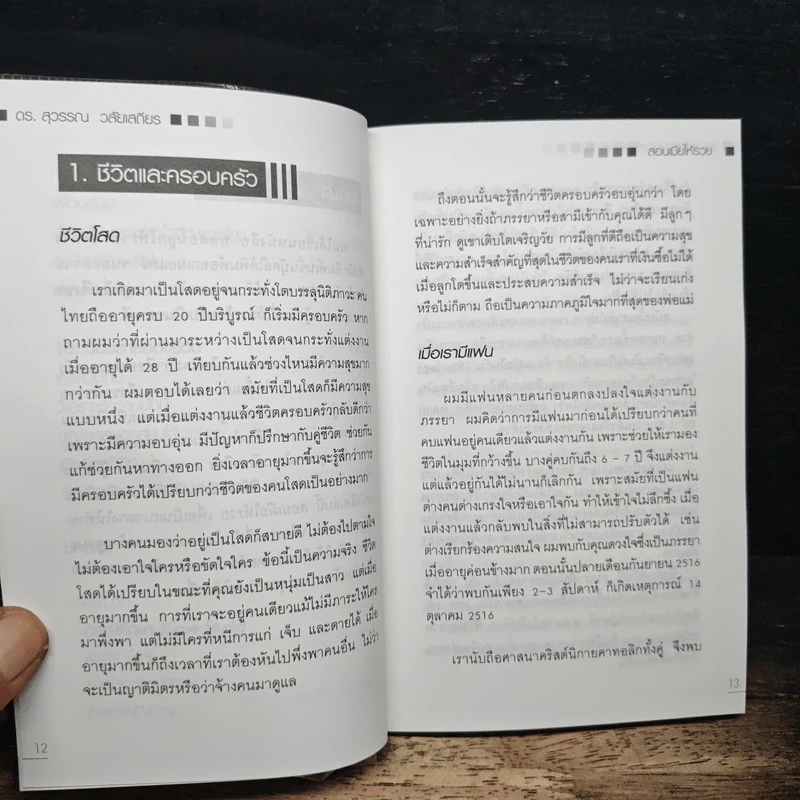 ดร. สุวรรณ วลัยเสถียร
1. ชีวิตและครอบครัว
ชีวิตโสด
เราเกิดมาเป็นโสดอยู่จนกระทั่งโตบรรลุนิติภาวะ คน
ไทยถืออายุครบ 20 ปีบริบูรณ์ ก็เริ่มมีครอบครัว หาก
ถามผมว่าที่ผ่านมาระหว่างเป็นโสดจนกระทั่งแต่งงาน
เมื่ออายุได้ 28 ปี เทียบกันแล้วช่วงไหนมีความสุขมาก
กว่ากัน ผมตอบได้เลยว่า สมัยที่เป็นโสดก็มีความสุข
แบบหนึ่ง แต่เมื่อแต่งงานแล้วชีวิตครอบครัวกลับดีกว่า
เพราะมีความอบอุ่น มีปัญหาก็ปรึกษากับคู่ชีวิต ช่วยกัน
แก้ช่วยกันหาทางออก ยิ่งเวลาอายุมากขึ้นจะรู้สึกว่าการ
มีครอบครัวได้เปรียบกว่าชีวิตของคนโสดเป็นอย่างมาก
บางคนมองว่าอยู่เป็นโสดก็สบายดี ไม่ต้องไปตามใจ
ไม่ต้องเอาใจใครหรือขัดใจใคร ข้อนี้เป็นความจริง ชีวิต
โสดได้เปรียบในขณะที่คุณยังเป็นหนุ่มเป็นสาว แต่เมื่อ
อายุมากขึ้น การที่เราจะอยู่คนเดียวแม้ไม่มีภาระให้ใคร
มาพึ่งพา แต่ไม่มีใครที่หนีการแก่ เจ็บ และตายได้ เมื่อ
อายุมากขึ้นก็ถึงเวลาที่เราต้องหันไปพึ่งพาคนอื่น ไม่ว่า
จะเป็นญาติมิตรหรือว่าจ้างคนมาดูแล
12
สอนเมียให้รวย
ถึงตอนนั้นจะรู้สึกว่าชีวิตครอบครัวอบอุ่นกว่า โดย
เฉพาะอย่างยิ่งถ้าภรรยาหรือสามีเข้ากับคุณได้ดี มีลูกๆ
ที่น่ารัก ดูเขาเติบโตเจริญวัย การมีลูกที่ดีถือเป็นความสุข
และความสำเร็จสำคัญที่สุดในชีวิตของคนเราที่เงินซื้อไม่ได้
เมื่อลูกโตขึ้นและประสบความสำเร็จ ไม่ว่าจะเรียนเก่ง
หรือไม่ก็ตาม ถือเป็นความภาคภูมิใจมากที่สุดของพ่อแม่
เมื่อเรามีแฟน
ผมมีแฟนหลายคนก่อนตกลงปลงใจแต่งงานกับ
ภรรยา ผมคิดว่าการมีแฟนมาก่อนได้เปรียบกว่าคนที่
คบแฟนอยู่คนเดียวแล้วแต่งงานกัน เพราะช่วยให้เรามอง
ชีวิตในมุมที่กว้างขึ้น บางคู่คบกันถึง 6 – 7 ปี จึงแต่งงาน
แต่แล้วอยู่กันได้ไม่นานก็เลิกกัน เพราะสมัยที่เป็นแฟน
ต่างคนต่างเกรงใจหรือเอาใจกัน ทำให้เข้าใจไม่ลึกซึ้ง เมื่อ
แต่งงานแล้วกลับพบในสิ่งที่ไม่สามารถปรับตัวได้ เช่น
ต่างเรียกร้องความสนใจ ผมพบกับคุณดวงใจซึ่งเป็นภรรยา
เมื่ออายุค่อนข้างมาก ตอนนั้นปลายเดือนกันยายน 2516
จำได้ว่าพบกันเพียง 2–3 สัปดาห์ ก็เกิดเหตุการณ์ 14
ตุลาคม 2516
เรานับถือศาสนาคริสต์นิกายคาทอลิกทั้งคู่ จึงพบ
13